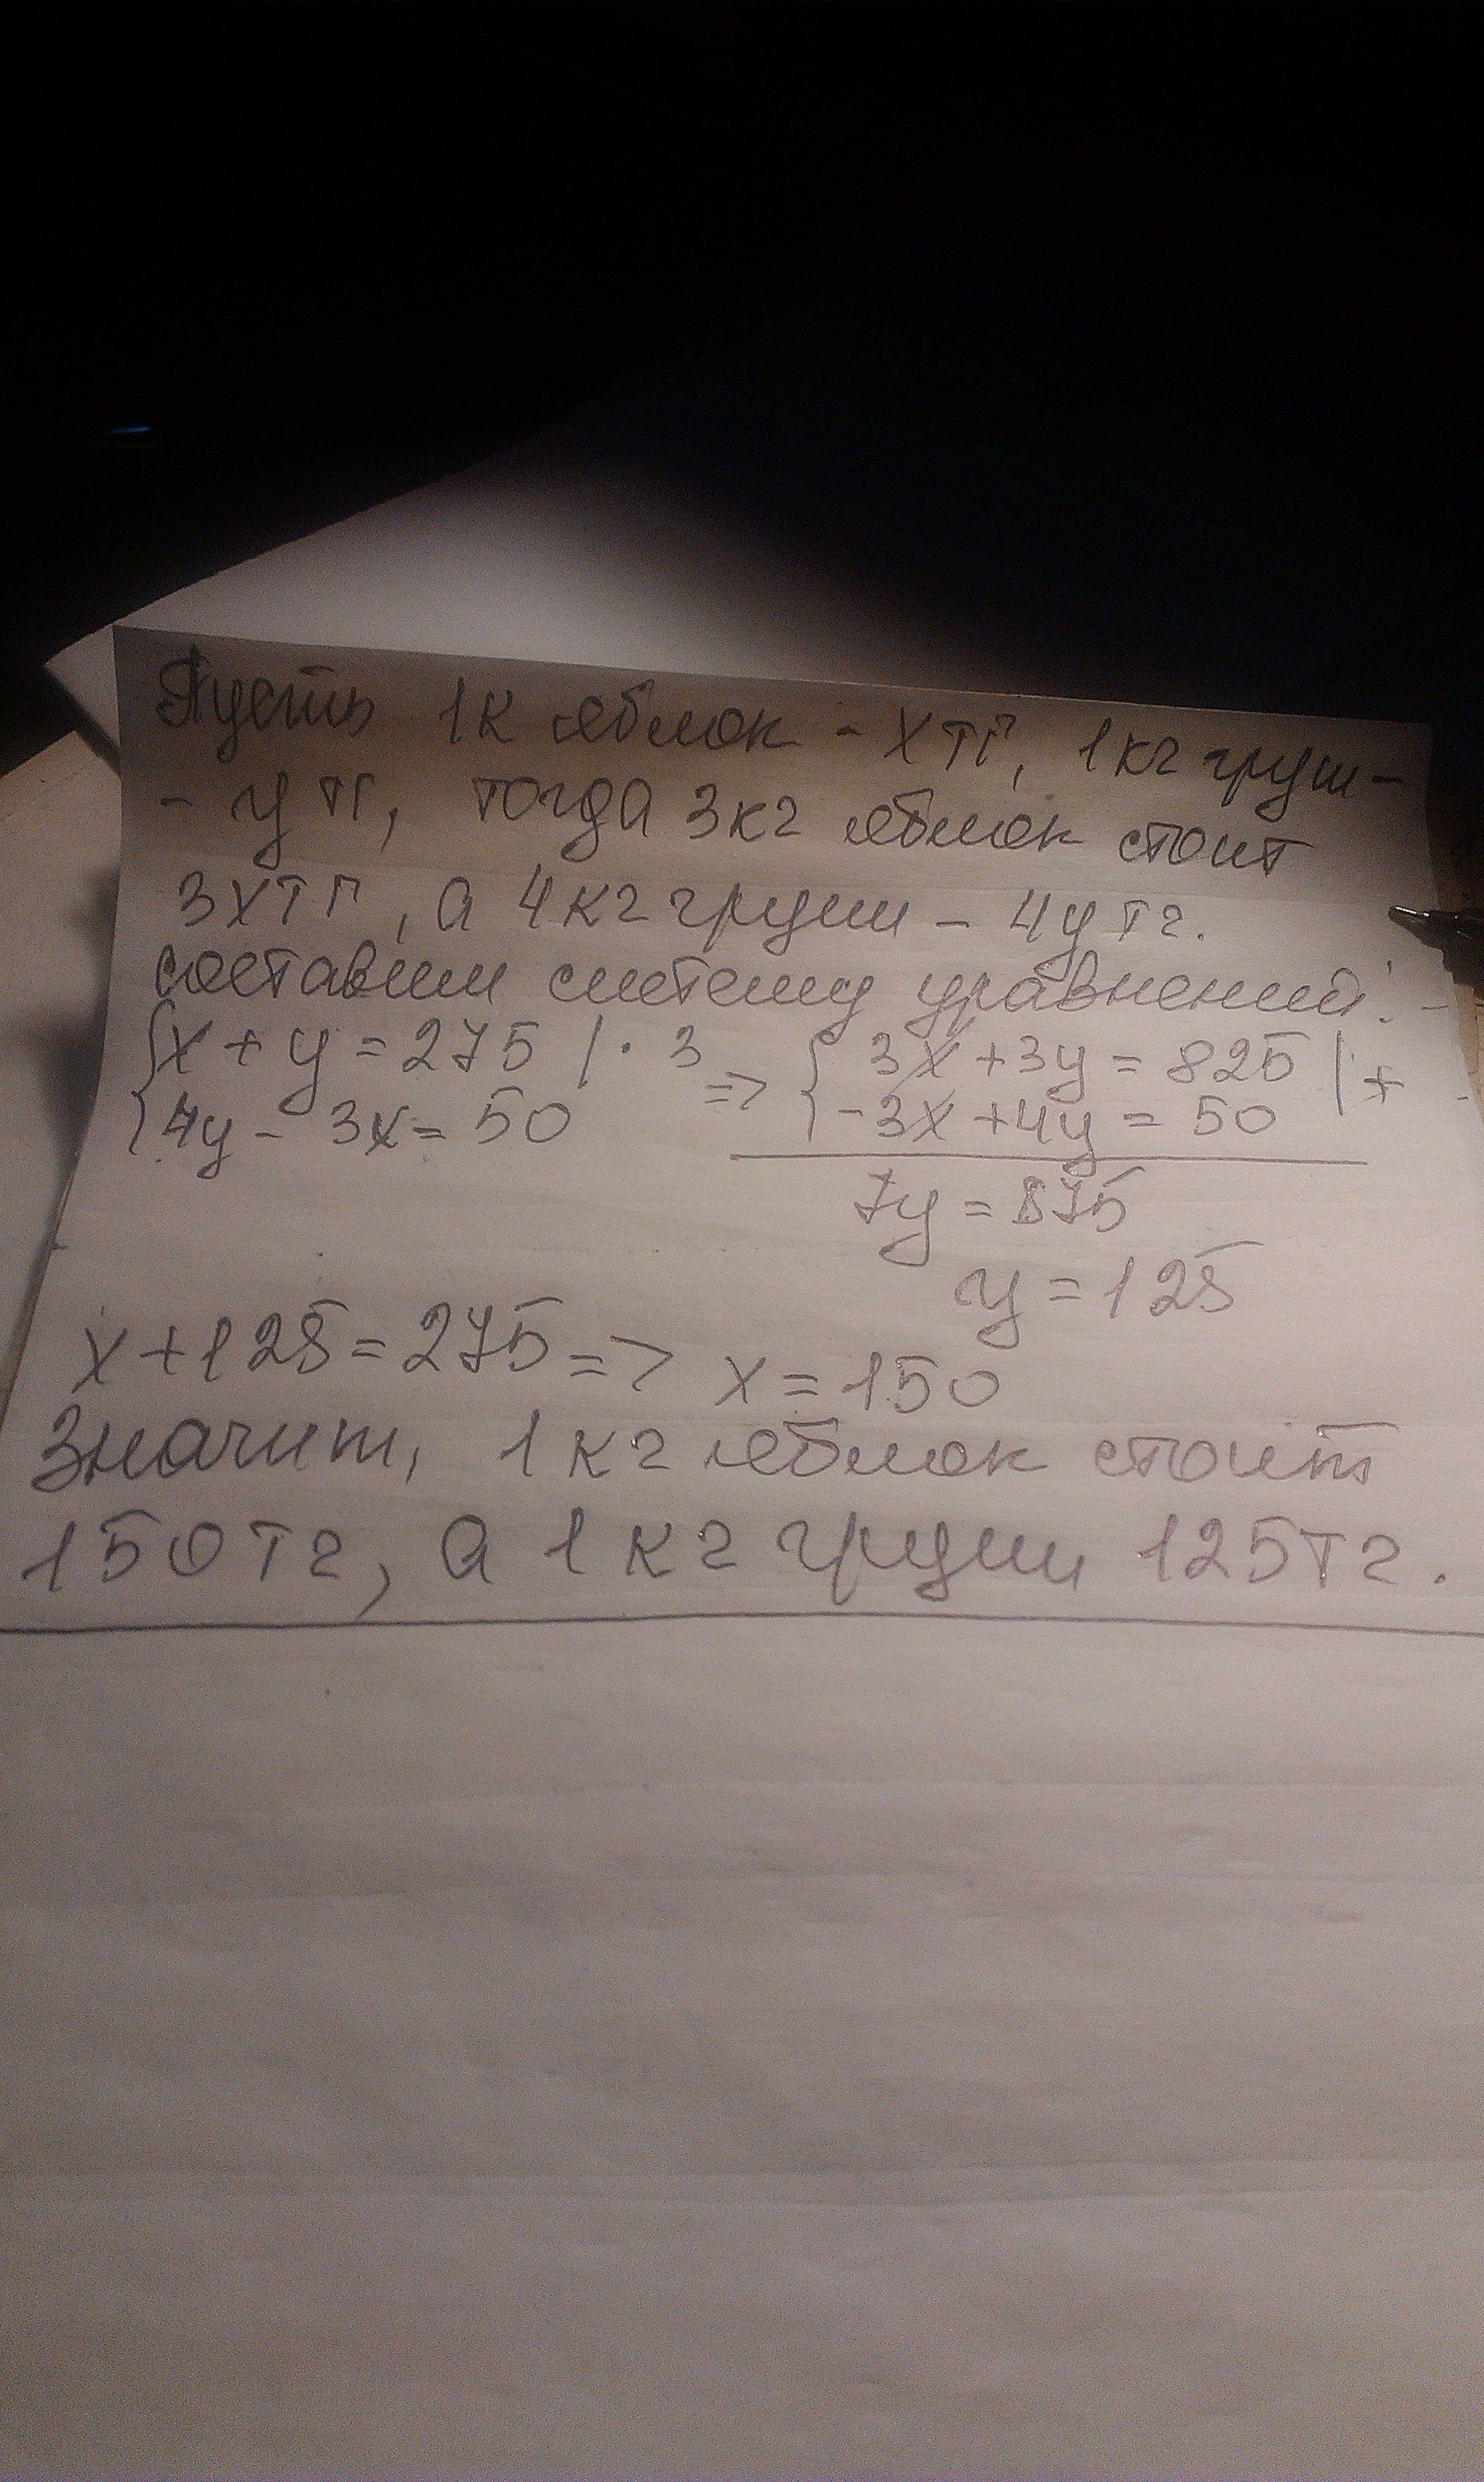 Пусть 1к яблок - х тг, 1кг груш -
- у тг, тогда 3кг яблок стоит
3х тг, а 4кг груш - 4у тг.
составим систему уравнений:
{x + y = 275 | · 3 => { 3x + 3y = 825 | +
{4y - 3x = 50 { -3x + 4y = 50
7y = 875
y = 125
x + 125 = 275 => x = 150
Значит, 1 кг яблок стоит
150 тг, а 1 кг груш 125 тг.